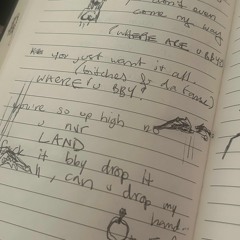 don't even
come my way
(WHERE ARE U BBY?)
you just want it all
(bitches & da fame)
WHERE U BBY
you're so up high
u nvr
LAND
it bby drop it
, can u drop my
hand-